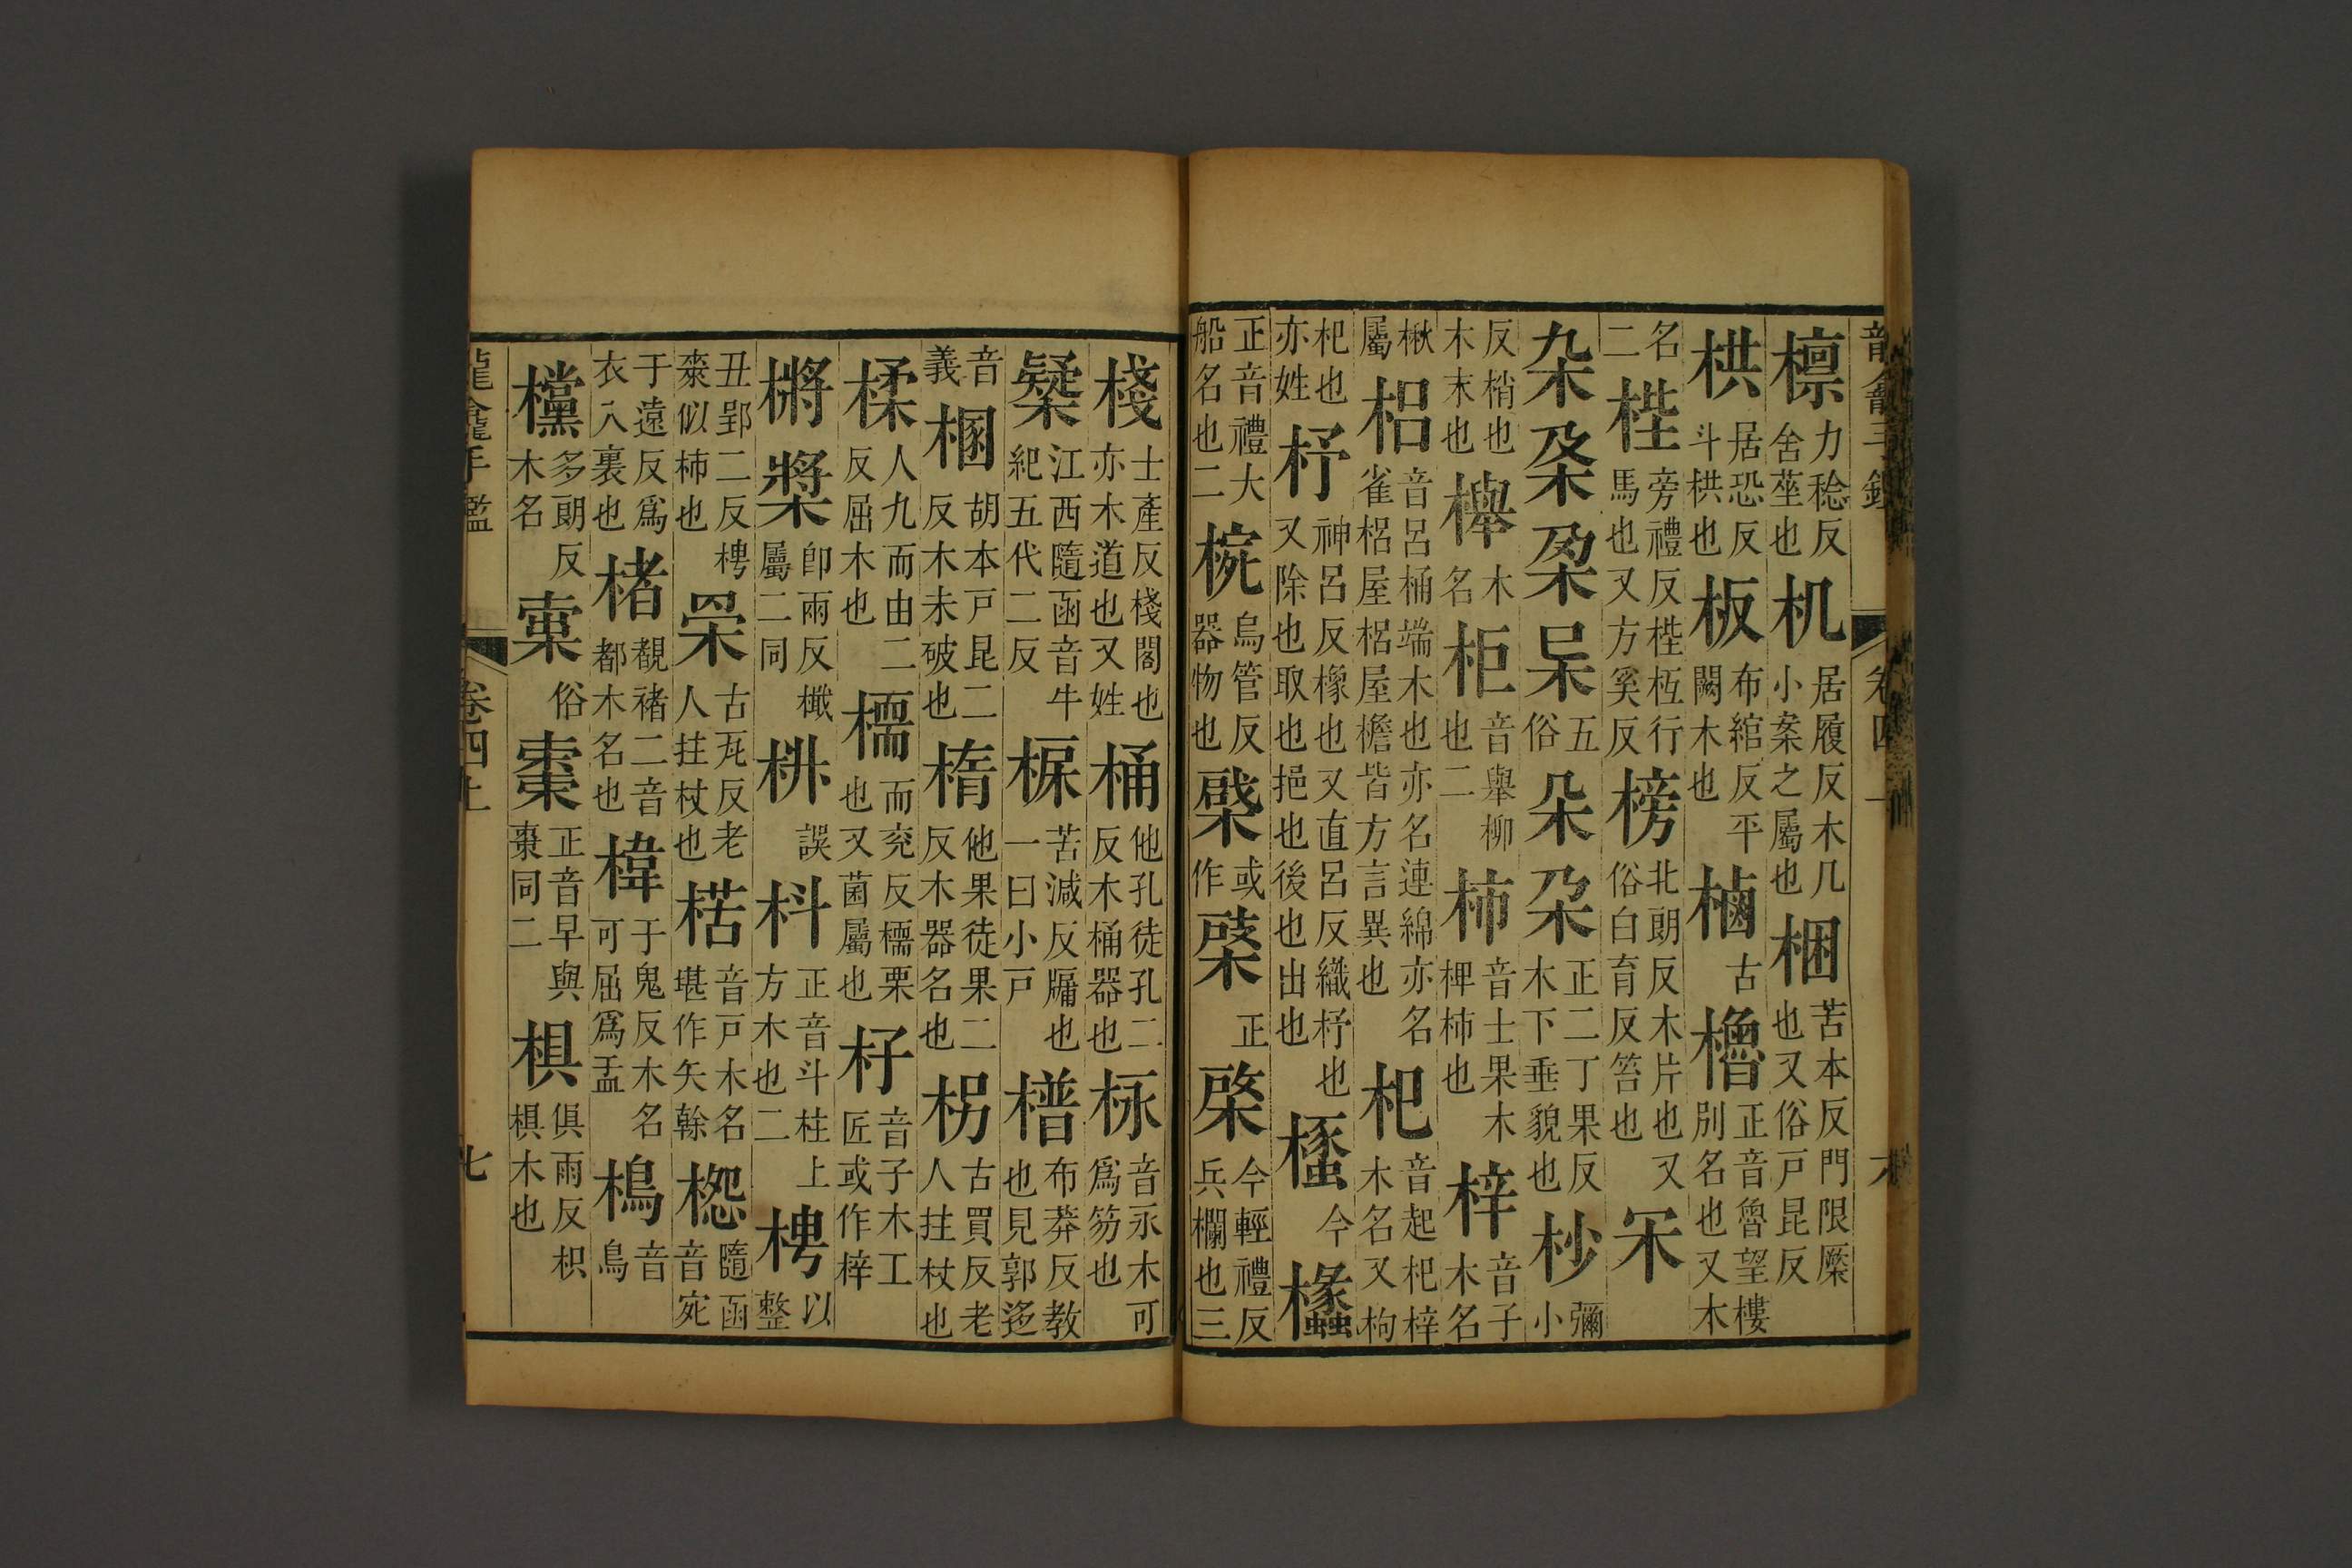 檩力稔反舍菙也机居履反木几小案之屬也梱苦本反門限橜也又俗戸昆反
栱居恐反斗栱也板布綰反平闕木也樐古櫓正音魯望樓別名也又木
名二梐旁禮反梐枑行馬也又方奚反榜北朗反木片也又俗白育反笞也
五俗朵正二丁果反木下垂貌也杪彌小
反梢也木末也櫸木名柜音舉柳也二柿音士果木椑柿也梓音子木名
楸屬梠音呂桶端木也亦名連綿亦名雀梠屋梠屋檐皆方言異也杞音起杞梓木名又枸
杞也亦姓杼神呂反橡也又直呂反織杼也又除也取也挹也後也出也今
正音禮大船名也二梡烏管反器物也或作正棨今輕禮反兵欄也三
棧士產反棧閣也亦木道也又姓桶他孔徒孔二反木桶器也栐音永木可爲笏也
江西隨函音牛紀五代二反槏苦減反牖也一曰小戸布莽反教也見郭迻
音義棞胡本戸昆二反木未破也楕他果徒果二反木器名也枴古買反老人拄杖也
楺人九而由二反屈木也檽而兖反檽栗也又菌屬也杍音子木工匠或作梓
槳卽兩反檝屬二同誤枓正音斗柱上方木也二梬以整
丑郢二反梬棗似柿也古瓦反老人拄杖也楛音戸木名堪作矢榦隨函音宛
于遠反爲衣入裏也楮覩褚二音都木名也椲于鬼反木名可屈爲盂樢音鳥
欓多朗反木名俗棗正音早與棘同二椇俱雨反枳椇木也
龍龕手鑑
卷四上
七